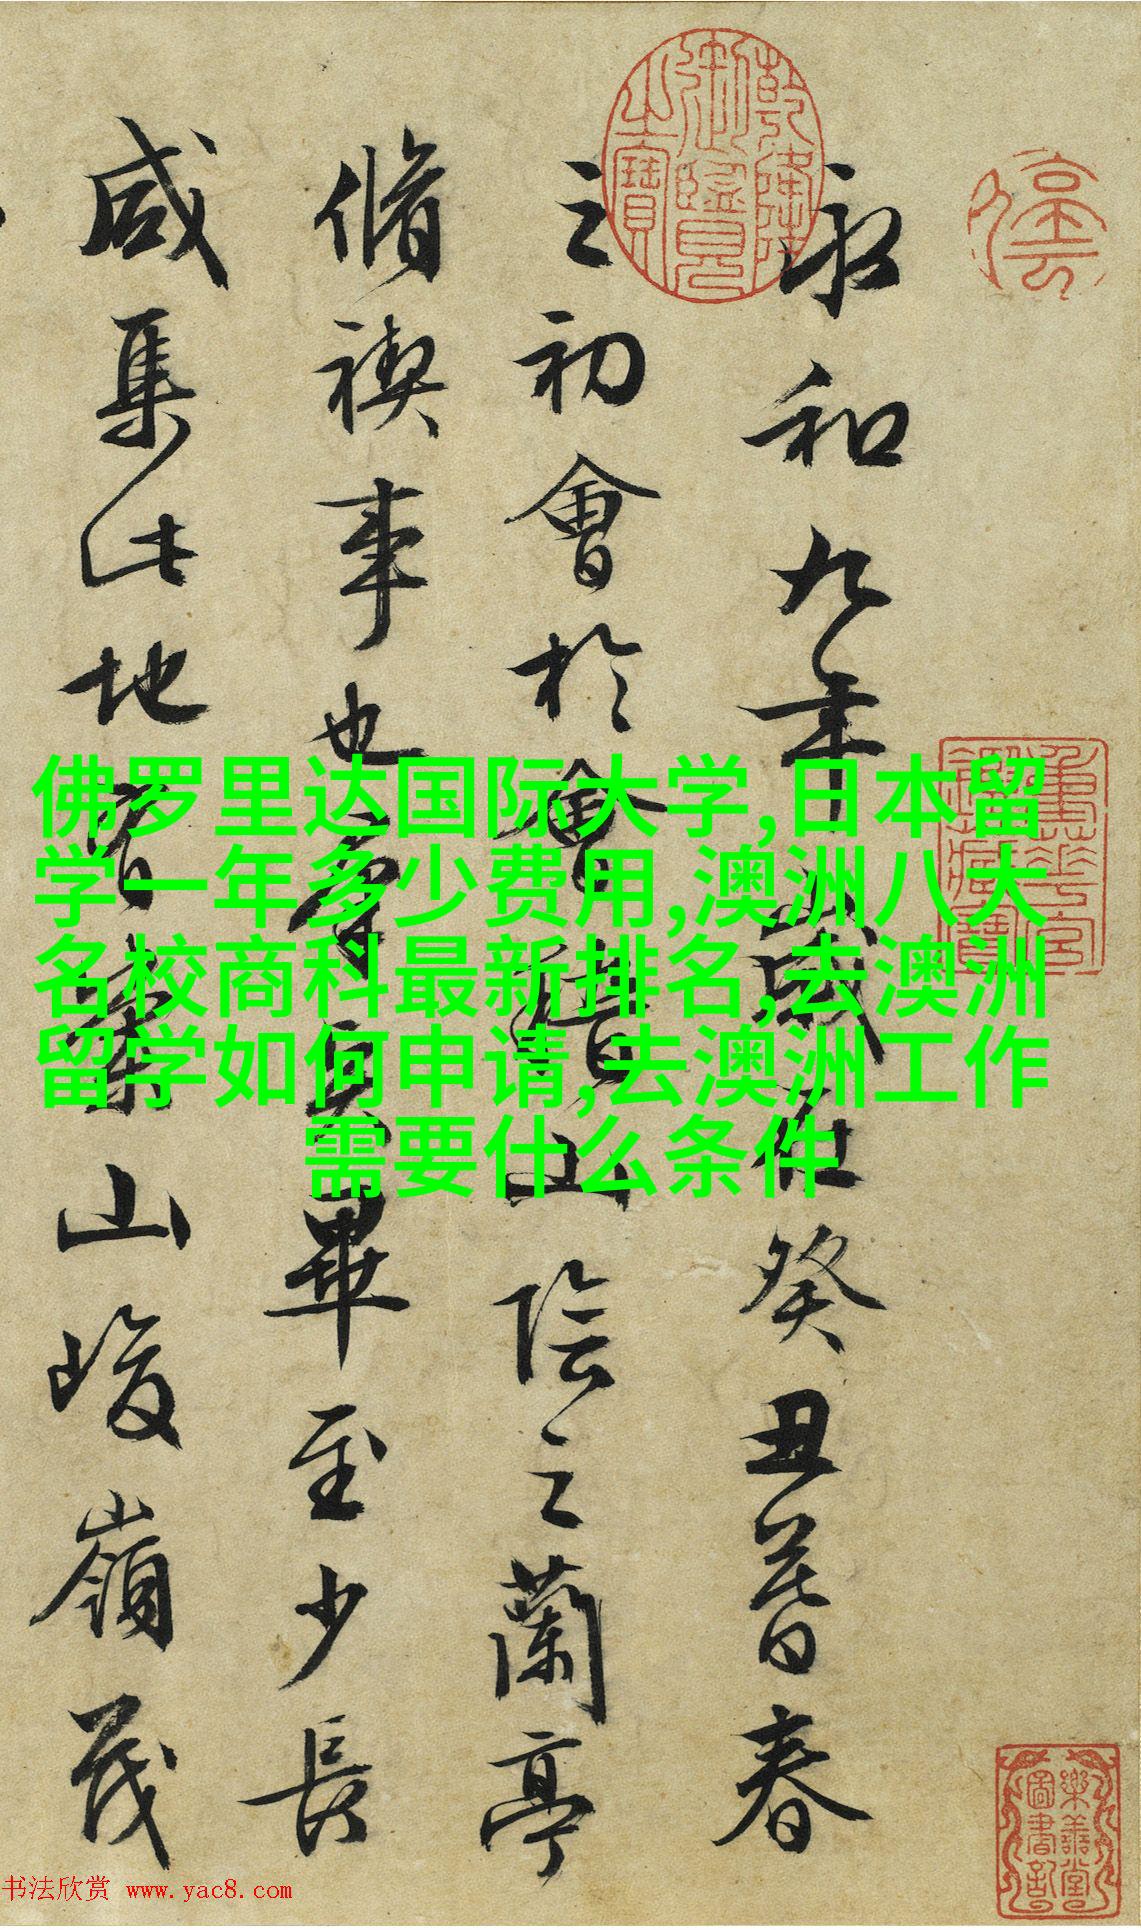 永和九年歲在癸丑暮春
之初會於會稽山陰之蘭亭
脩禊事也羣賢畢至少長
咸集此地有崇山峻嶺茂
乾隆御覽之寶
停雲
重華宮鑑藏寶
樂善堂圖書記
佛罗里达国际大学,日本留
学一年多少费用,澳洲八大
名校商科最新排名,去澳洲
留学如何申请,去澳洲工作
需要什么条件
书法欣赏 www.yac8.com